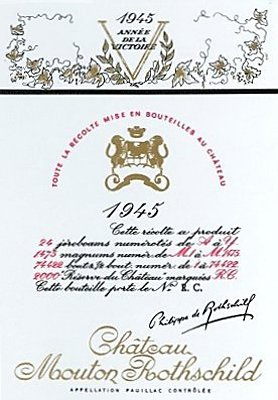 1945
ANNÉE
DE LA
VICTOIRE
V
TOUTE LA RÉCOLTE MISE EN BOUTEILLES AU CHÂTEAU
1945
Cette récolte a produit
24 jéroboams numérotés de A à Y
1475 magnums numér. de M1 à M1475
74422 bout. & ½ bout. numér. de 1 à 74422
2000 "Réserve du Château" marquées R.C.
Cette bouteille porte le Nº R.C.
Philippe de Rothschild
Château
Mouton Rothschild
APPELLATION PAUILLAC CONTRÔLÉE